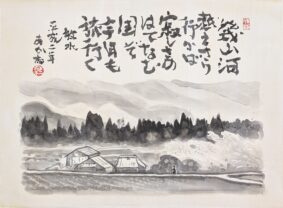 幾山河
越えさり
行かば
寂しさの
はてなむ
国ぞ
今日も
旅行く
牧水